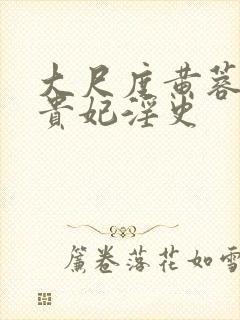 大尺度黄蓉
贵妃淫史
簾卷落花如雪